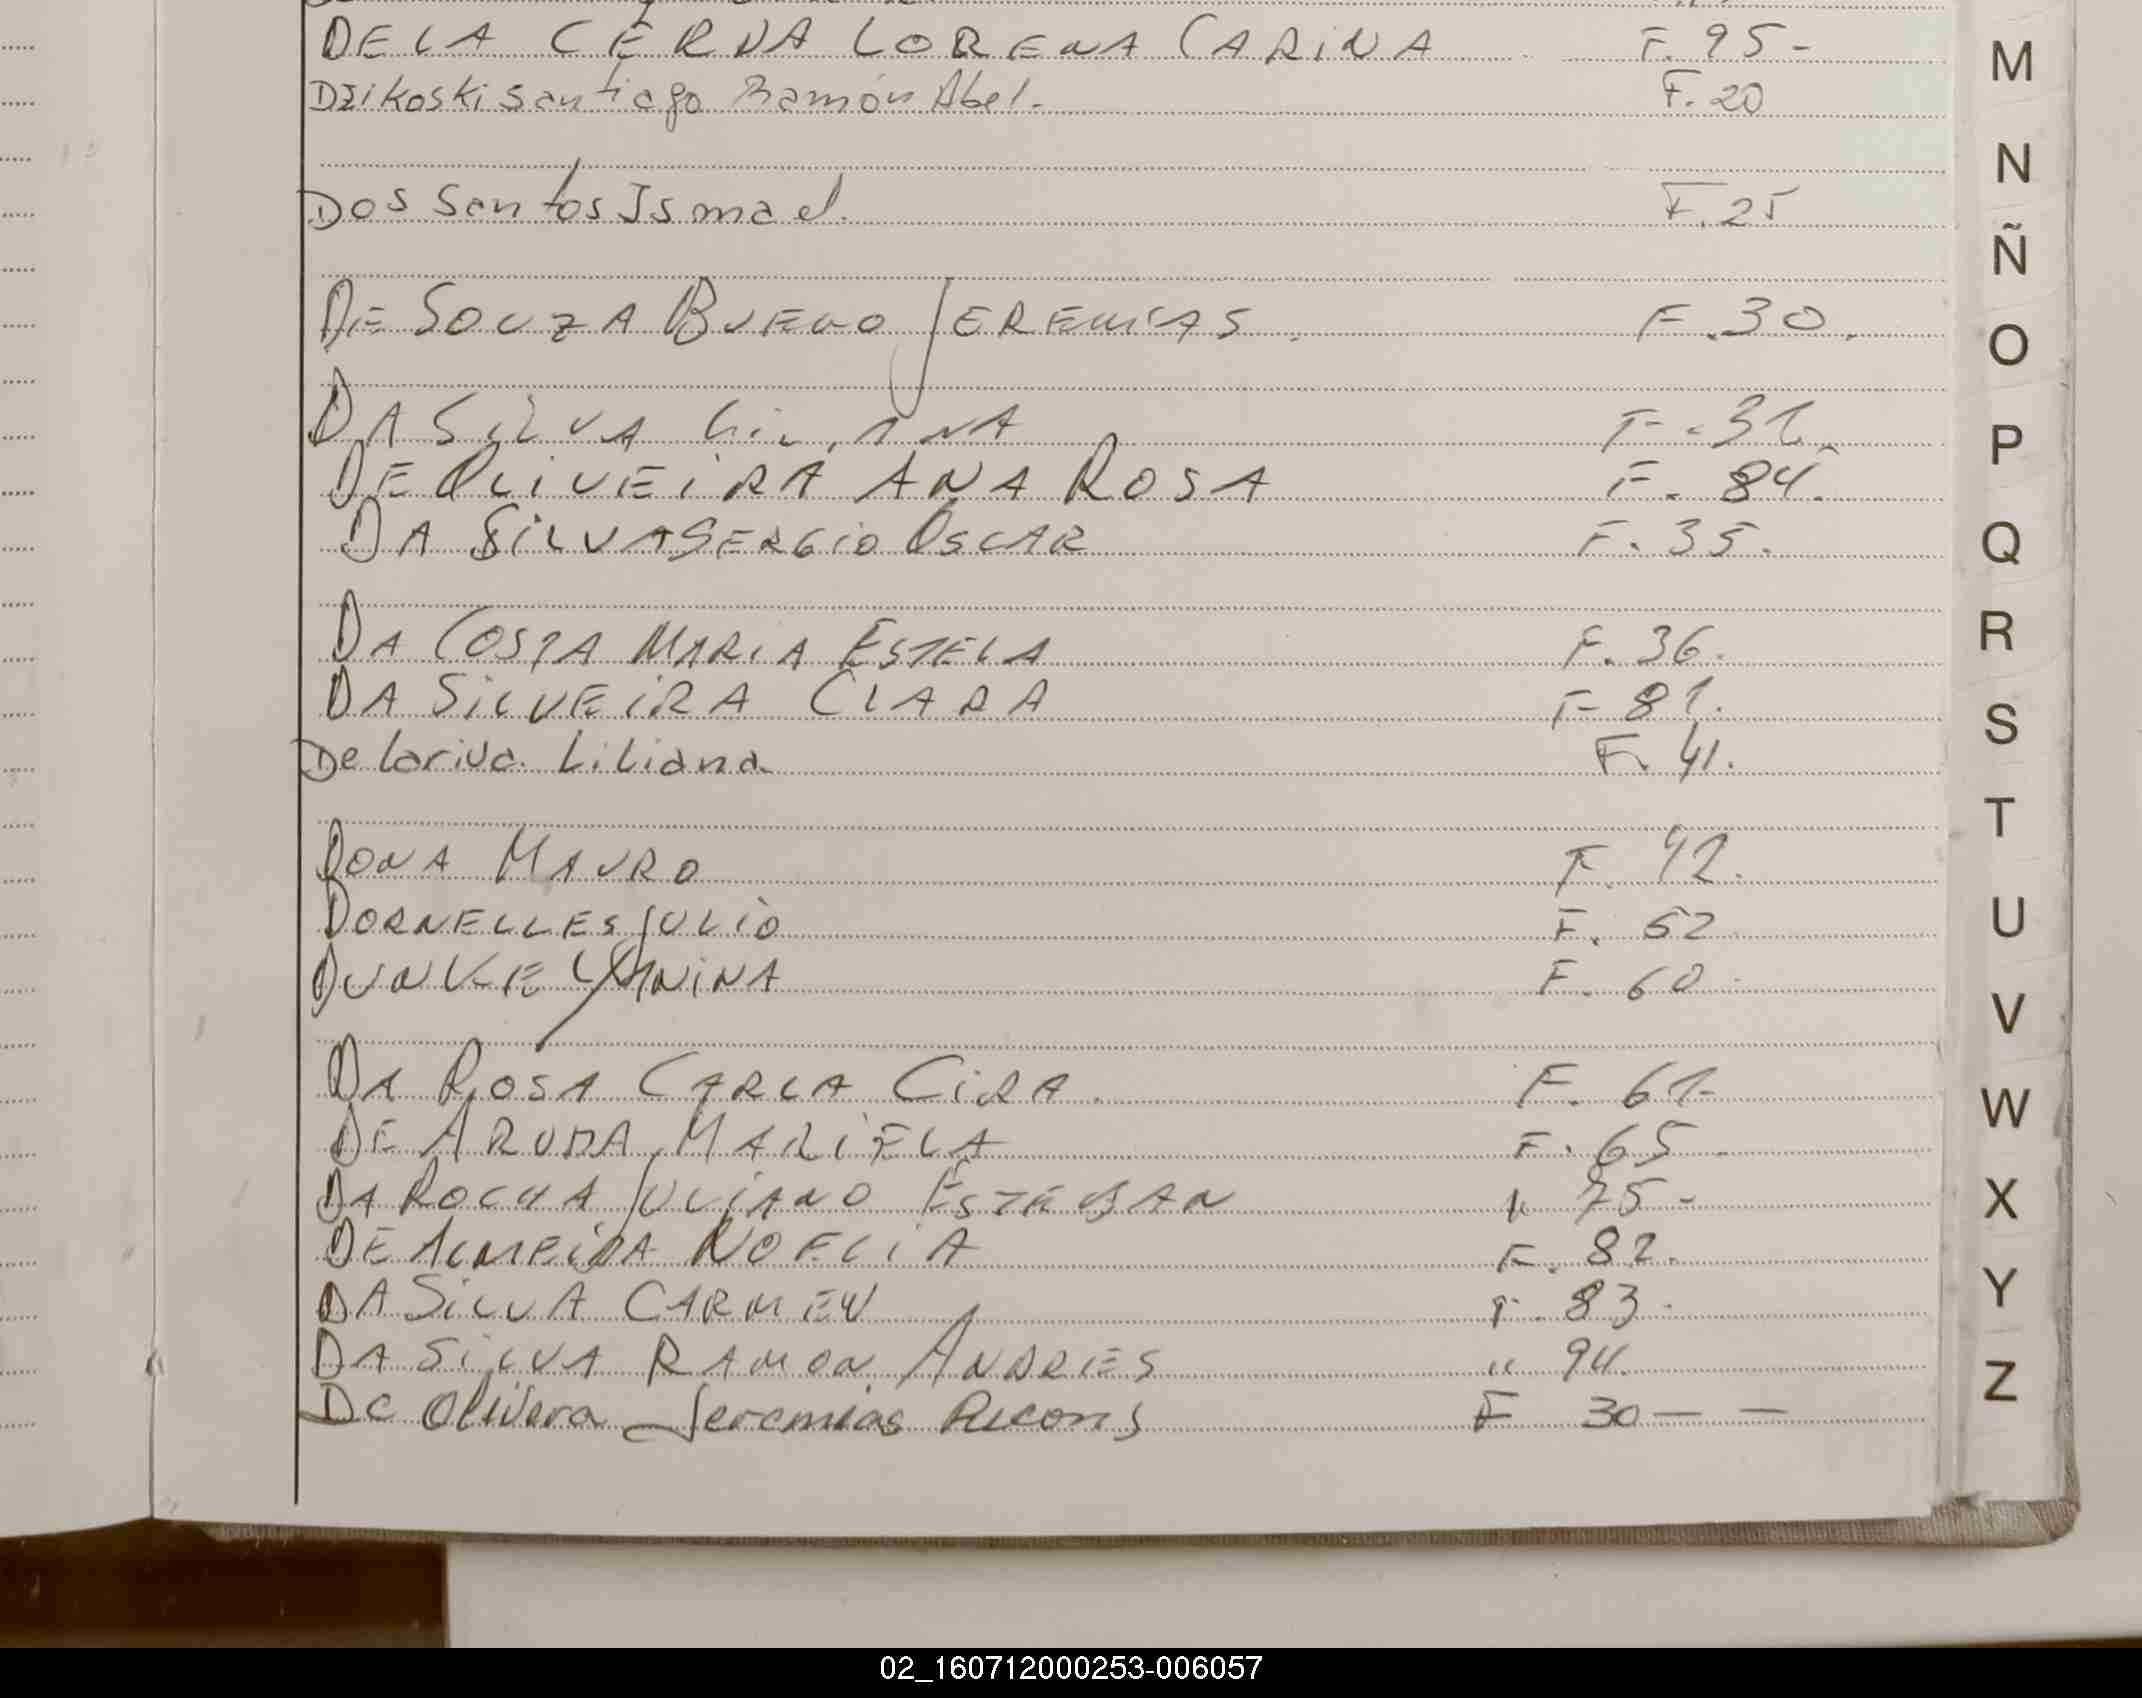 DE LA CERNA LORENA CARINA F. 95-
Dzikoski Santiago Ramón Abel. F. 20
Dos Santos Ismael. F. 25
DE SOUZA BUENO JEREMIAS. F. 30.
DA SILVA F. 31.
DE OLIVEIRA ANA ROSA F. 84.
DA SILVA SERGIO OSCAR F. 35.
DA COSTA MARIA ESTELA F. 36.
DA SILVEIRA CLARA F 81.
De Lariva. Liliana F. 41.
DONA MAURO F. 42.
DORNELLES JULIO F. 52
DUNKE YANINA F. 60.
DA ROSA CARLA CIRA. F. 61-
DE ARUDA MARIELA F. 65-
DA ROCHA JULIANO ESTEBAN " 75-
DE ALMEIDA NOELIA F. 82.
DA SILVA CARMEN F. 83.
DA SILVA RAMON ANDRES " 94.
De Olivera Jeremias F 30 — —
M
N
Ñ
O
P
Q
R
S
T
U
V
W
X
Y
Z
02_160712000253-006057